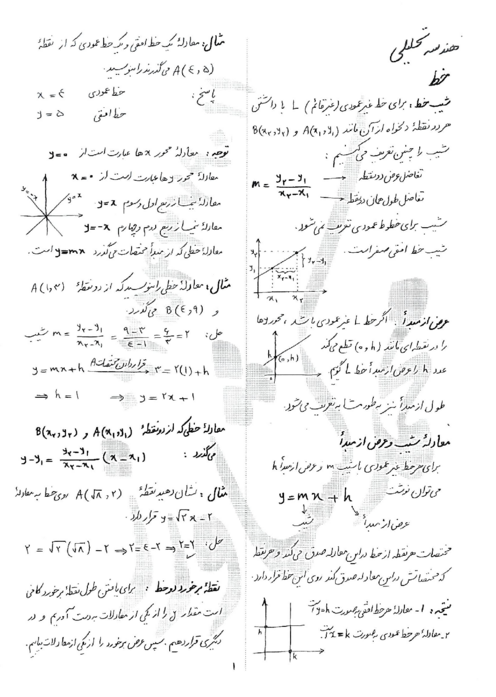 هندسه تحلیلی
خط
شیب خط: برای خط غیرعمودی (غیرقائم) L با داشتن
هر دو نقطهٔ دلخواه از آن مانند A(x₁,y₁) و B(x₂,y₂)
شیب را چنین تعریف می‌کنیم:
m = (y₂-y₁)/(x₂-x₁) → تفاضل عرض دو نقطه → تفاضل طول همان دو نقطه
شیب برای خطوط عمودی تعریف نمی‌شود.
شیب خط افقی صفر است.
y₂-y₁
y₁
x₂-x₁
x₁ x₂
عرض از مبدأ: اگر خط L غیرعمودی باشد، محور yها
را در نقطه‌ای مانند (۰,h) قطع می‌کند
عدد h را عرض از مبدأ خط L گوییم.
(۰,h)
طول از مبدأ نیز به طور مشابه تعریف می‌شود.
معادلهٔ شیب و عرض از مبدأ
برای هر خط غیر عمودی با شیب m و عرض از مبدأ h
می‌توان نوشت
y = mx + h
شیب
عرض از مبدأ
مختصات هر نقطه از خط در این معادله صدق می‌کند و هر نقطه
که مختصاتش در این معادله صدق کند روی این خط قرار دارد.
نتیجه: ۱- معادلهٔ هر خط افقی بصورت y=h است
۲- معادلهٔ هر خط عمودی بصورت x=k است
h
k
مثال: معادلهٔ یک خط افقی و یک خط عمودی که از نقطهٔ
A(۴,۵) می‌گذرند را بنویسید.
پاسخ: خط عمودی x = ۴
خط افقی y = ۵
توجه: معادلهٔ محور xها عبارت است از y=۰
معادلهٔ محور yها عبارت است از x=۰
معادلهٔ نیمساز ربع اول و سوم y=x
معادلهٔ نیمساز ربع دوم و چهارم y=-x
معادلهٔ خطی که از مبدأ مختصات می‌گذرد y=mx است.
y=-x y=x
مثال: معادلهٔ خطی را بنویسید که از دو نقطهٔ A(۱,۳)
و B(۴,۹) می‌گذرد.
حل: شیب m = (y₂-y₁)/(x₂-x₁) = (۹-۳)/(۴-۱) = ۶/۳ = ۲
y = mx + h قرار دادن مختصات A → ۳ = ۲(۱)+h
⇒ h = ۱ ⇒ y = ۲x + ۱
معادلهٔ خطی که از دو نقطهٔ A(x₁,y₁) و B(x₂,y₂)
می‌گذرد: y-y₁ = (y₂-y₁)/(x₂-x₁) (x-x₁)
مثال: نشان دهید نقطهٔ A(√۸,۲) روی خط به معادلهٔ
y=√۲x-۲ قرار دارد.
حل: ۲ = √۲(√۸)-۲ ⇒ ۲=۴-۲ ⇒ ۲=۲
نقطهٔ برخورد دو خط: برای یافتن طول نقطهٔ برخورد کافی
است مقدار y را از یکی از معادلات به‌دست آوریم و در
دیگری قرار دهیم. سپس عرض برخورد را از یکی از معادلات بیابیم.
۱